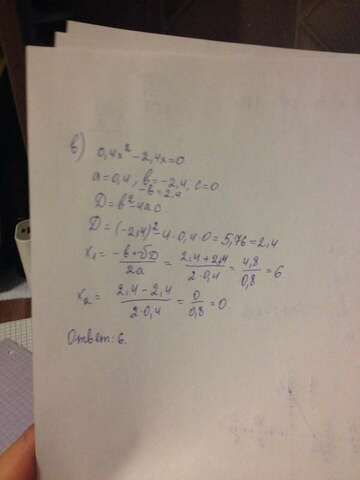 в) 0,4x² - 2,4x = 0
a = 0,4; в = -2,4, c = 0
-в = 2,4
D = в² - 4ac
D = (-2,4)² - 4 · 0,4 · 0 = 5,76 = 2,4
x₁ = (-в + √D) / 2a = (2,4 + 2,4) / (2 · 0,4) = 4,8 / 0,8 = 6
x₂ = (2,4 - 2,4) / (2 · 0,4) = 0 / 0,8 = 0.
Ответ: 6.